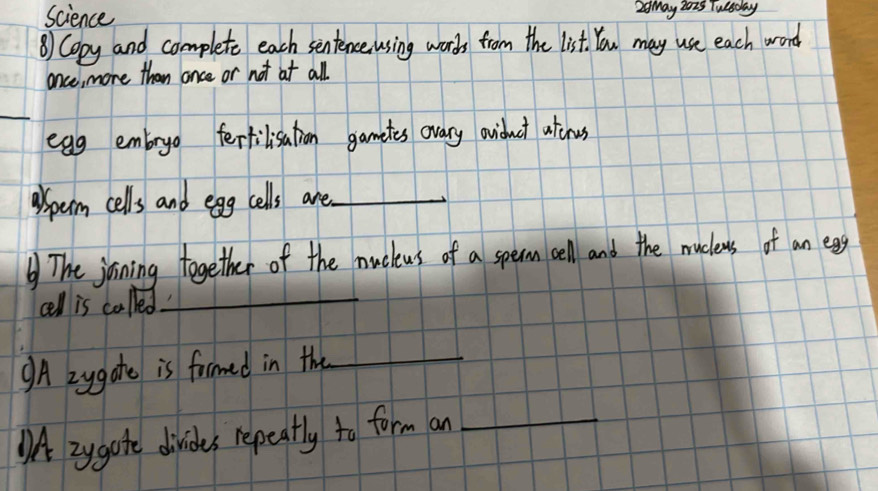 Science
20May 2025 Tuesday
8) Copy and complete each sentence, using words from the list. You may use each word
once, more than once or not at all.
egg embryo fertilisation gametes ovary oviduct uterus
a) Sperm cells and egg cells are
b) The joining together of the nucleus of a sperm cell and the nucleus of an egg
cell is called
c) A zygote is formed in the
d) A zygote divides repeatly to form an